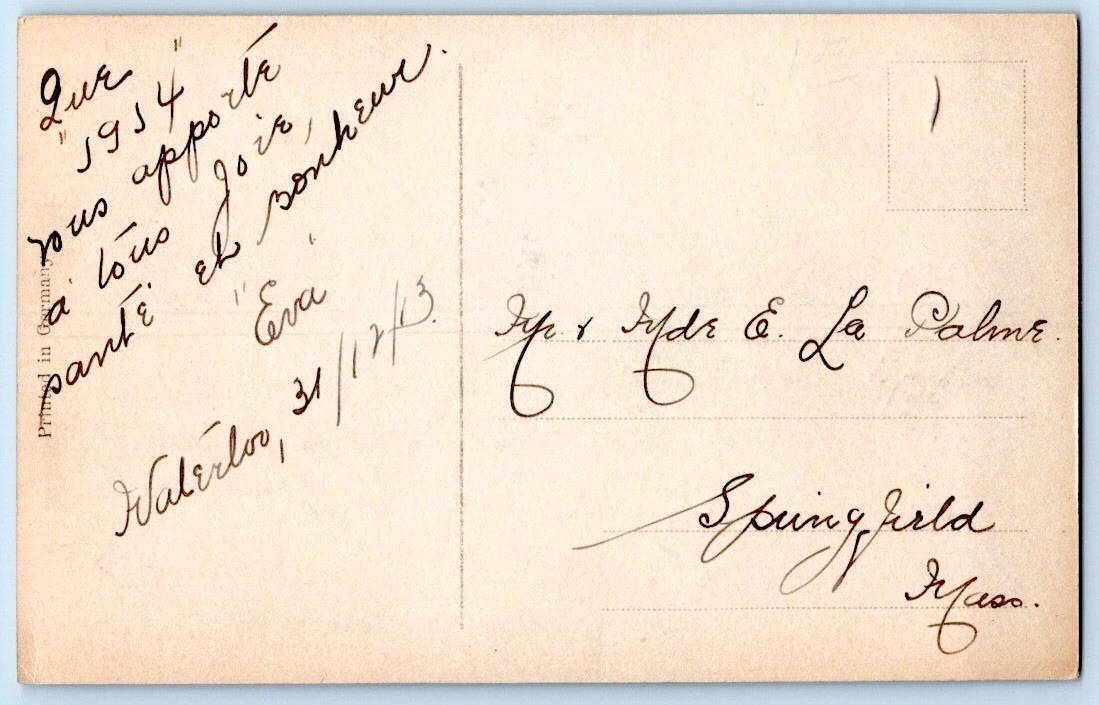 Que
"1914"
vous apporte
à tous Joie,
santé et bonheur.
"Eva"
Waterloo, 31/12/13.
Printed in Germany
Mr & Mde E. La Palme.
Springfield
Mass.